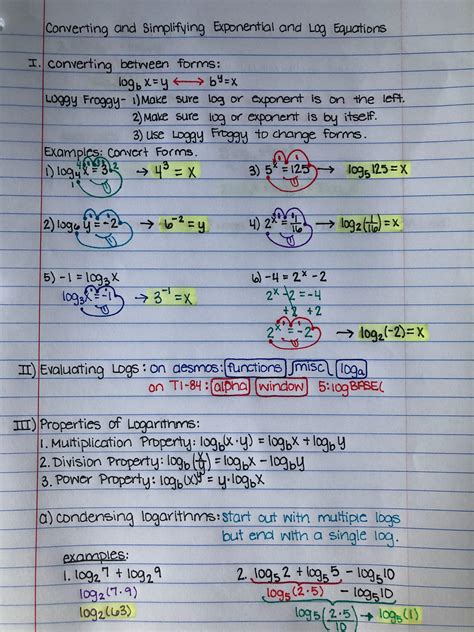 Converting and Simplifying Exponential and Log Equations
I. Converting between forms:
log_b x=y ⟷ b^y=x
Loggy Froggy- 1) Make sure log or exponent is on the left.
2) Make sure log or exponent is by itself.
3) Use Loggy Froggy to change forms.
Examples: Convert Forms.
1) log₄x=3 → 4³=x
3) 5^x=125 → log₅125=x
2) log₆y=-2 → 6⁻²=y
4) 2^x=1/16 → log₂(1/16)=x
5) -1=log₃x
log₃x=-1 → 3⁻¹=x
6) -4=2^x-2
2^x-2=-4
+2 +2
2^x=-2 → log₂(-2)=x
II) Evaluating Logs: on desmos: functions misc logₐ
on TI-84: alpha window 5:logBASE(
III) Properties of Logarithms:
1. Multiplication Property: log_b(x·y)=log_b x+log_b y
2. Division Property: log_b(x/y)=log_b x-log_b y
3. Power Property: log_b(x)^y=y·log_b x
a) condensing logarithms: start out with multiple logs
but end with a single log.
examples:
1. log₂7+log₂9
log₂(7·9)
log₂(63)
2. log₅2+log₅5-log₅10
log₅(2·5) -log₅10
log₅(2·5/10) → log₅(1)